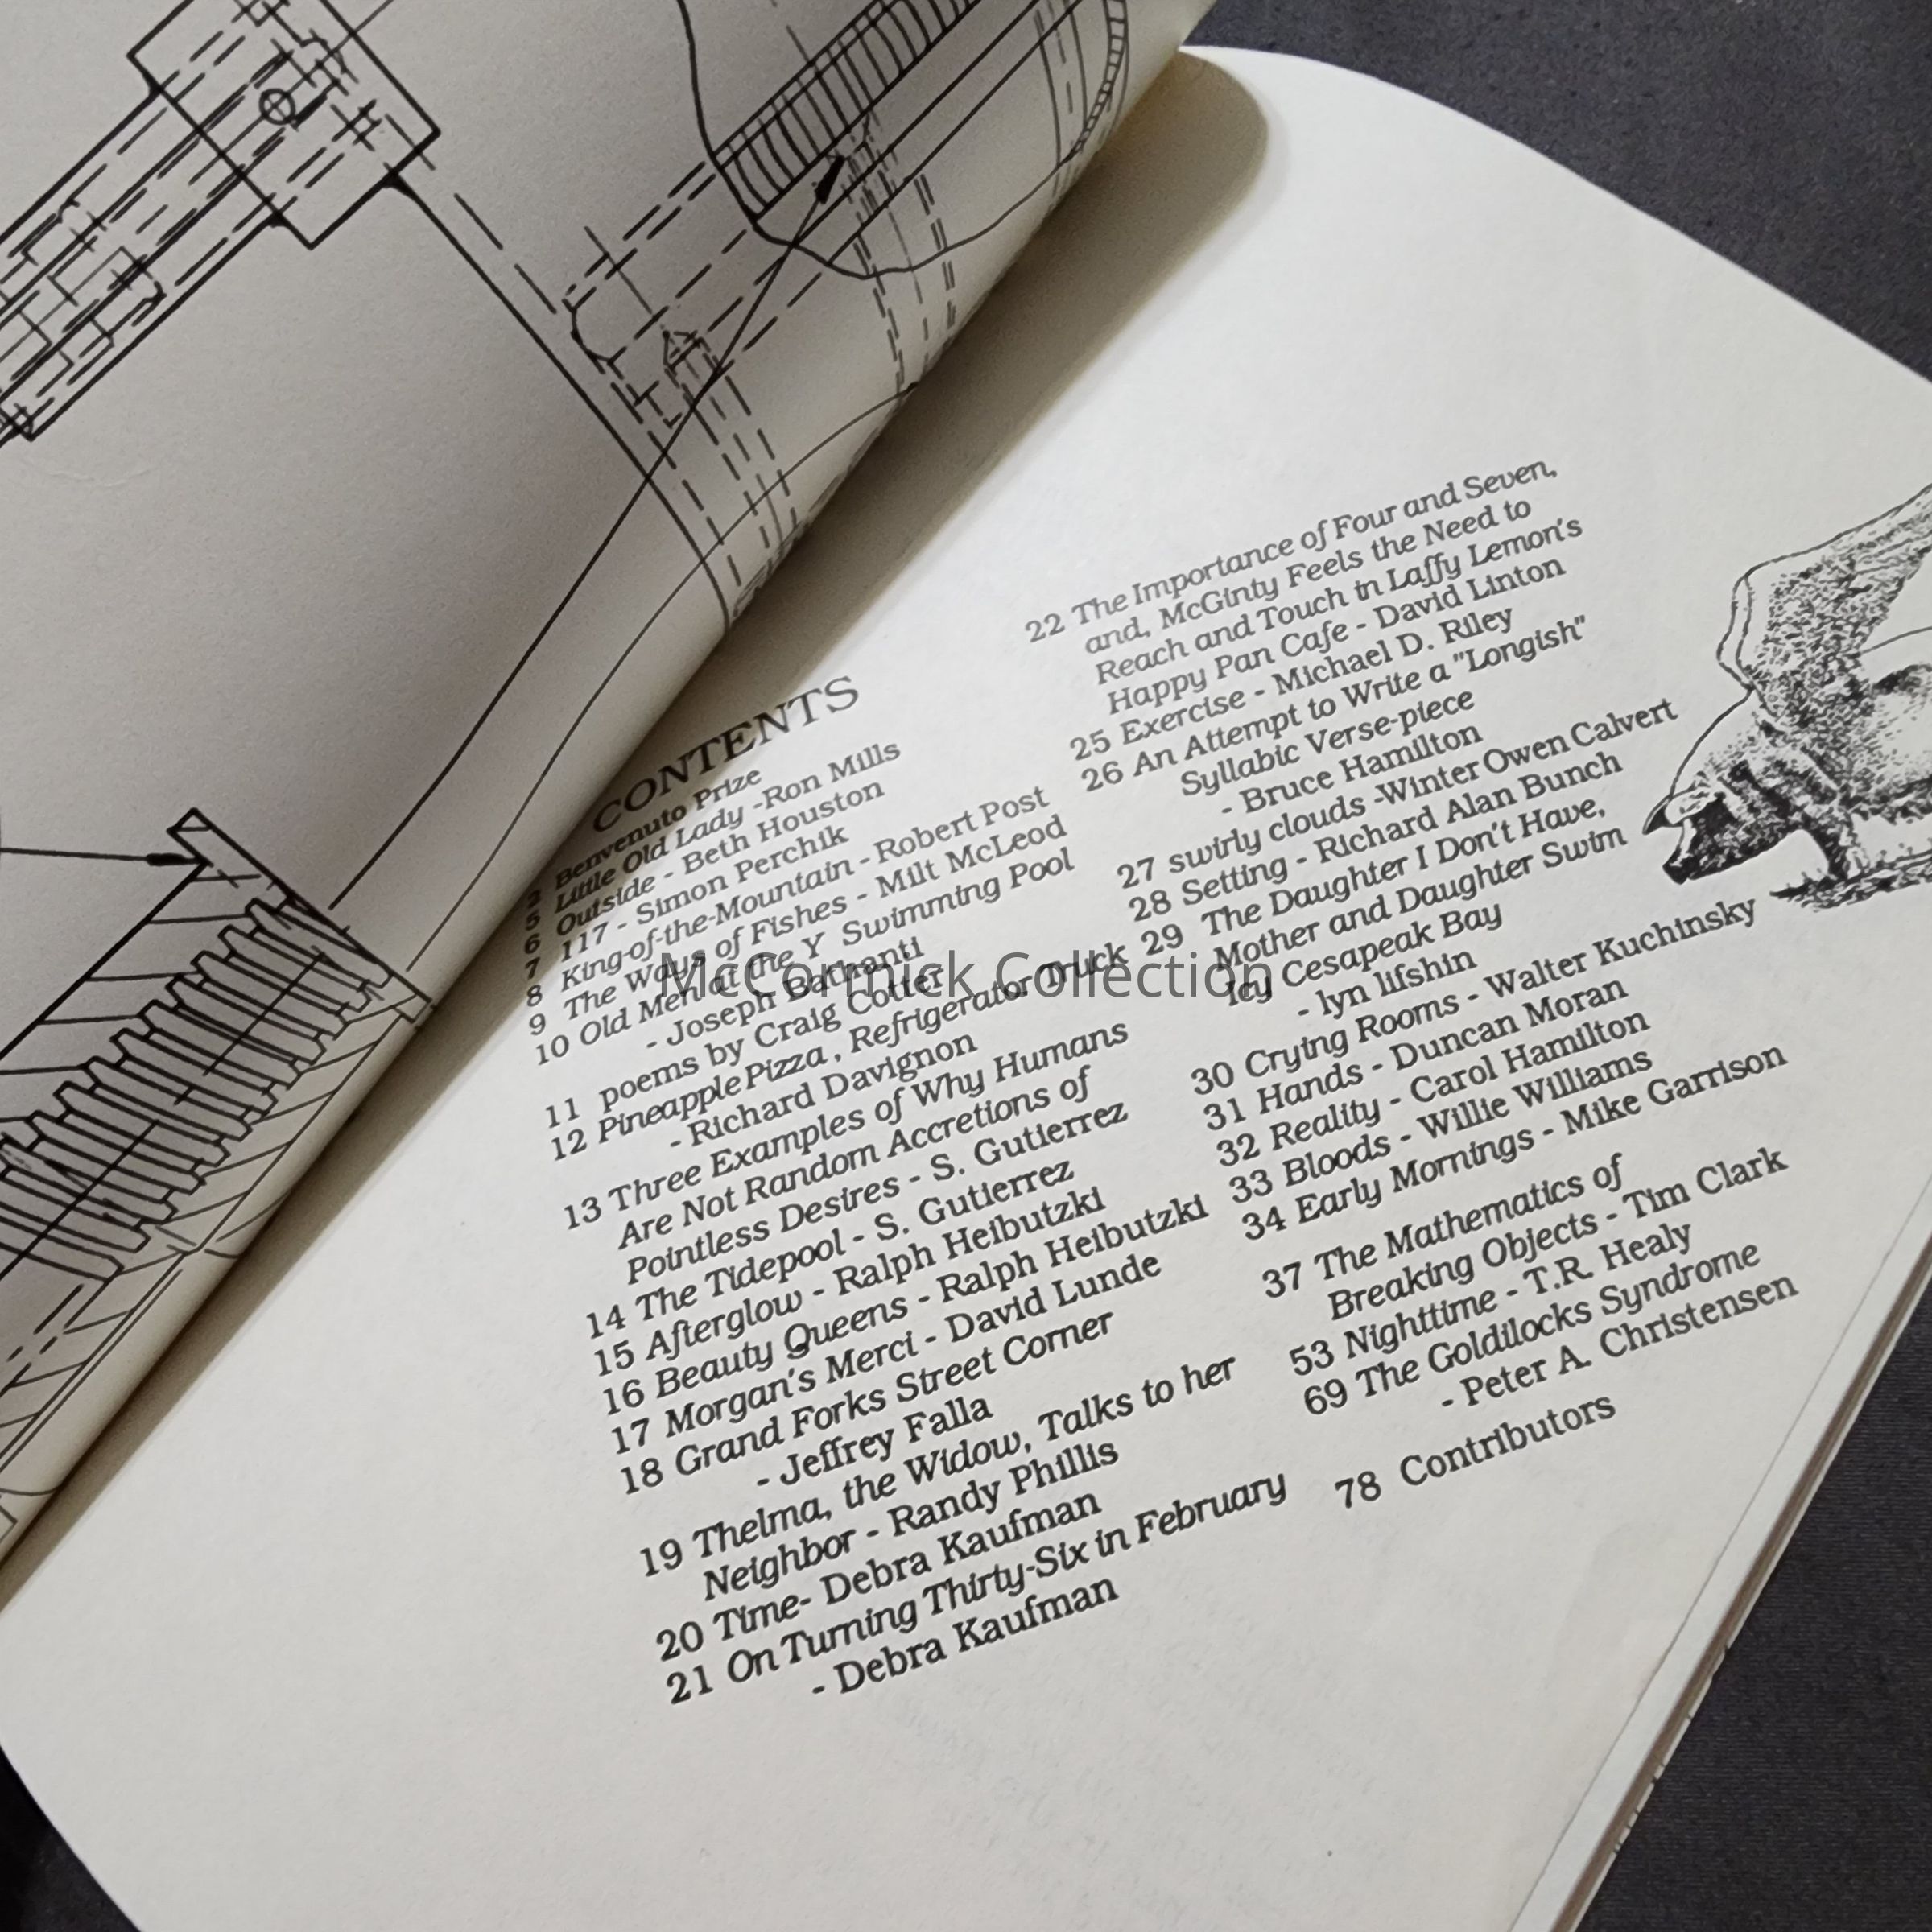 CONTENTS
2 Benvenuto Prize
5 Little Old Lady -Ron Mills
6 Outside - Beth Houston
7 117 - Simon Perchik
8 King-of-the-Mountain - Robert Post
9 The Ways of Fishes - Milt McLeod
10 Old Men at the Y Swimming Pool
- Joseph Bathanti
11 poems by Craig Cotter
12 Pineapple Pizza, Refrigerator Truck
- Richard Davignon
13 Three Examples of Why Humans
Are Not Random Accretions of
Pointless Desires - S. Gutierrez
14 The Tidepool - S. Gutierrez
15 Afterglow - Ralph Heibutzki
16 Beauty Queens - Ralph Heibutzki
17 Morgan's Merci - David Lunde
18 Grand Forks Street Corner
- Jeffrey Falla
19 Thelma, the Widow, Talks to her
Neighbor - Randy Phillis
20 Time- Debra Kaufman
21 On Turning Thirty-Six in February
- Debra Kaufman
22 The Importance of Four and Seven,
and, McGinty Feels the Need to
Reach and Touch in Laffy Lemon's
Happy Pan Cafe - David Linton
25 Exercise - Michael D. Riley
26 An Attempt to Write a "Longish"
Syllabic Verse-piece
- Bruce Hamilton
27 swirly clouds -Winter Owen Calvert
28 Setting - Richard Alan Bunch
29 The Daughter I Don't Have,
Mother and Daughter Swim
Icy Cesapeak Bay
- lyn lifshin
30 Crying Rooms - Walter Kuchinsky
31 Hands - Duncan Moran
32 Reality - Carol Hamilton
33 Bloods - Willie Williams
34 Early Mornings - Mike Garrison
37 The Mathematics of
Breaking Objects - Tim Clark
53 Nighttime - T.R. Healy
69 The Goldilocks Syndrome
- Peter A. Christensen
78 Contributors
McCormick Collection